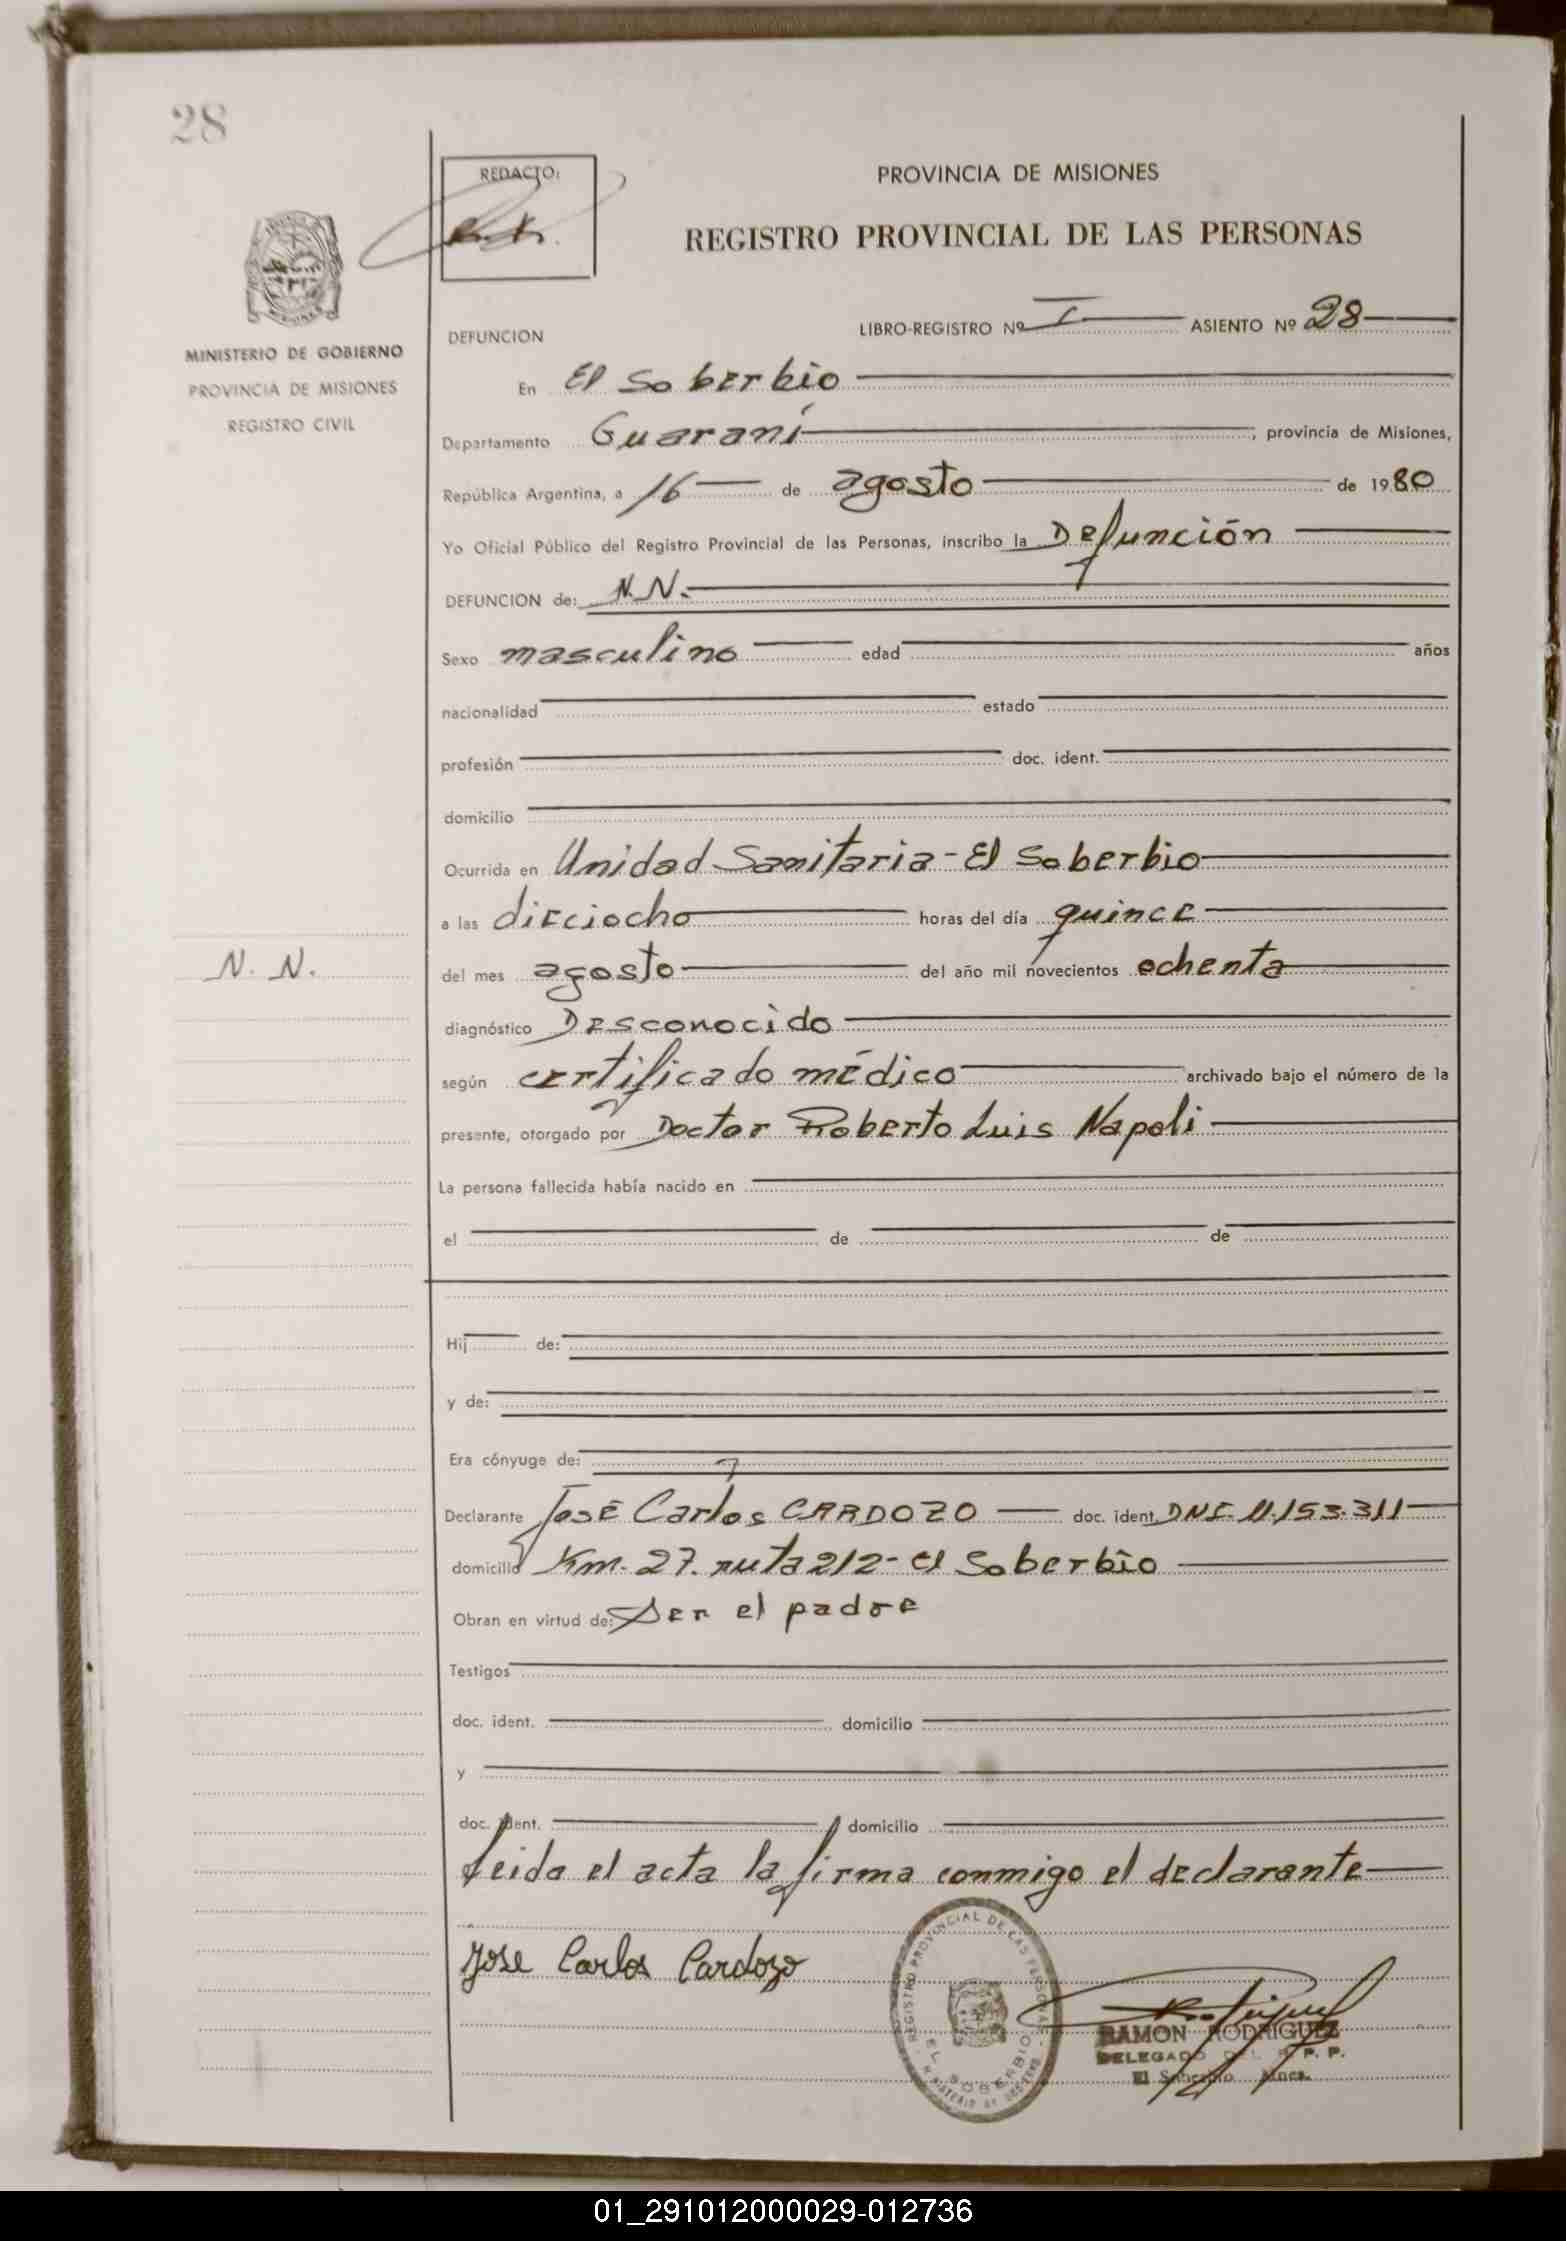 28
REDACTO:
PROVINCIA DE MISIONES
REGISTRO PROVINCIAL DE LAS PERSONAS
MINISTERIO DE GOBIERNO
PROVINCIA DE MISIONES
REGISTRO CIVIL
DEFUNCION
LIBRO-REGISTRO Nº I ASIENTO Nº 28
En El Soberbio
Departamento Guaraní, provincia de Misiones,
República Argentina, a 16 de agosto de 1980
Yo Oficial Público del Registro Provincial de las Personas, inscribo la Defunción
DEFUNCION de: N.N.
Sexo masculino edad años
nacionalidad estado
profesión doc. ident.
domicilio
Ocurrida en Unidad Sanitaria - El Soberbio
a las dieciocho horas del día quince
N. N.
del mes agosto del año mil novecientos ochenta
diagnóstico Desconocido
según certificado médico archivado bajo el número de la
presente, otorgado por Doctor Roberto Luis Napoli
La persona fallecida había nacido en
el de de
Hij de:
y de:
Era cónyuge de:
Declarante José Carlos CARDOZO doc. ident. DNI. 11.153.311
domicilio Km. 27. ruta 212 - El Soberbio
Obran en virtud de: Ser el padre
Testigos
doc. ident. domicilio
y
doc. ident. domicilio
Leida el acta la firma conmigo el declarante
Jose Carlos Cardozo
REGISTRO PROVINCIAL DE LAS PERSONAS
EL SOBERBIO
RAMON RODRIGUEZ
DELEGADO DEL R. P. P.
El Soberbio Mnes.
01_291012000029-012736